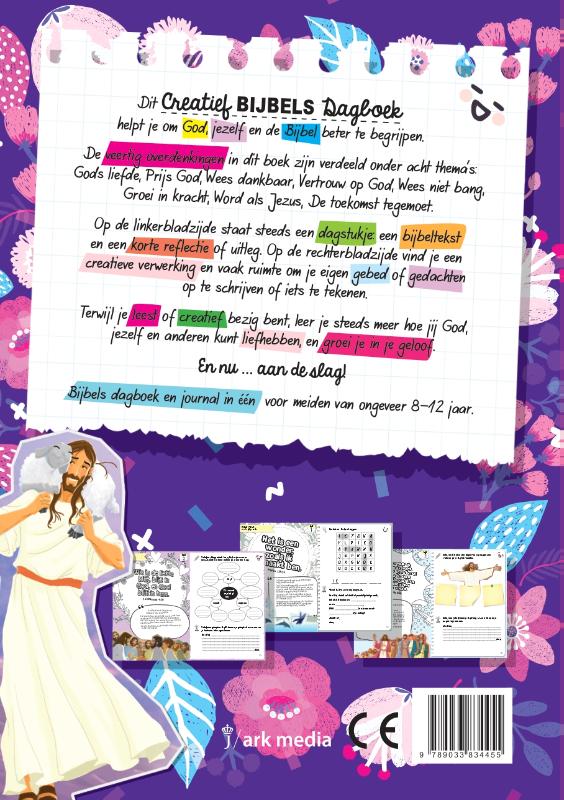 Dit Creatief BIJBELS Dagboek
helpt je om God, jezelf en de Bijbel beter te begrijpen.
De veertig overdenkingen in dit boek zijn verdeeld onder acht thema's:
Gods liefde, Prijs God, Wees dankbaar, Vertrouw op God, Wees niet bang,
Groei in kracht, Word als Jezus, De toekomst tegemoet.
Op de linkerbladzijde staat steeds een dagstukje: een bijbeltekst
en een korte reflectie of uitleg. Op de rechterbladzijde vind je een
creatieve verwerking en vaak ruimte om je eigen gebed of gedachten
op te schrijven of iets te tekenen.
Terwijl je leest of creatief bezig bent, leer je steeds meer hoe jij God,
jezelf en anderen kunt liefhebben, en groei je in je geloof.
En nu ... aan de slag!
Bijbels dagboek en journal in één voor meiden van ongeveer 8–12 jaar.
Het is een
wonder
zoals ik
gemaakt ben.
j/ark media
CE
9 789033 834455